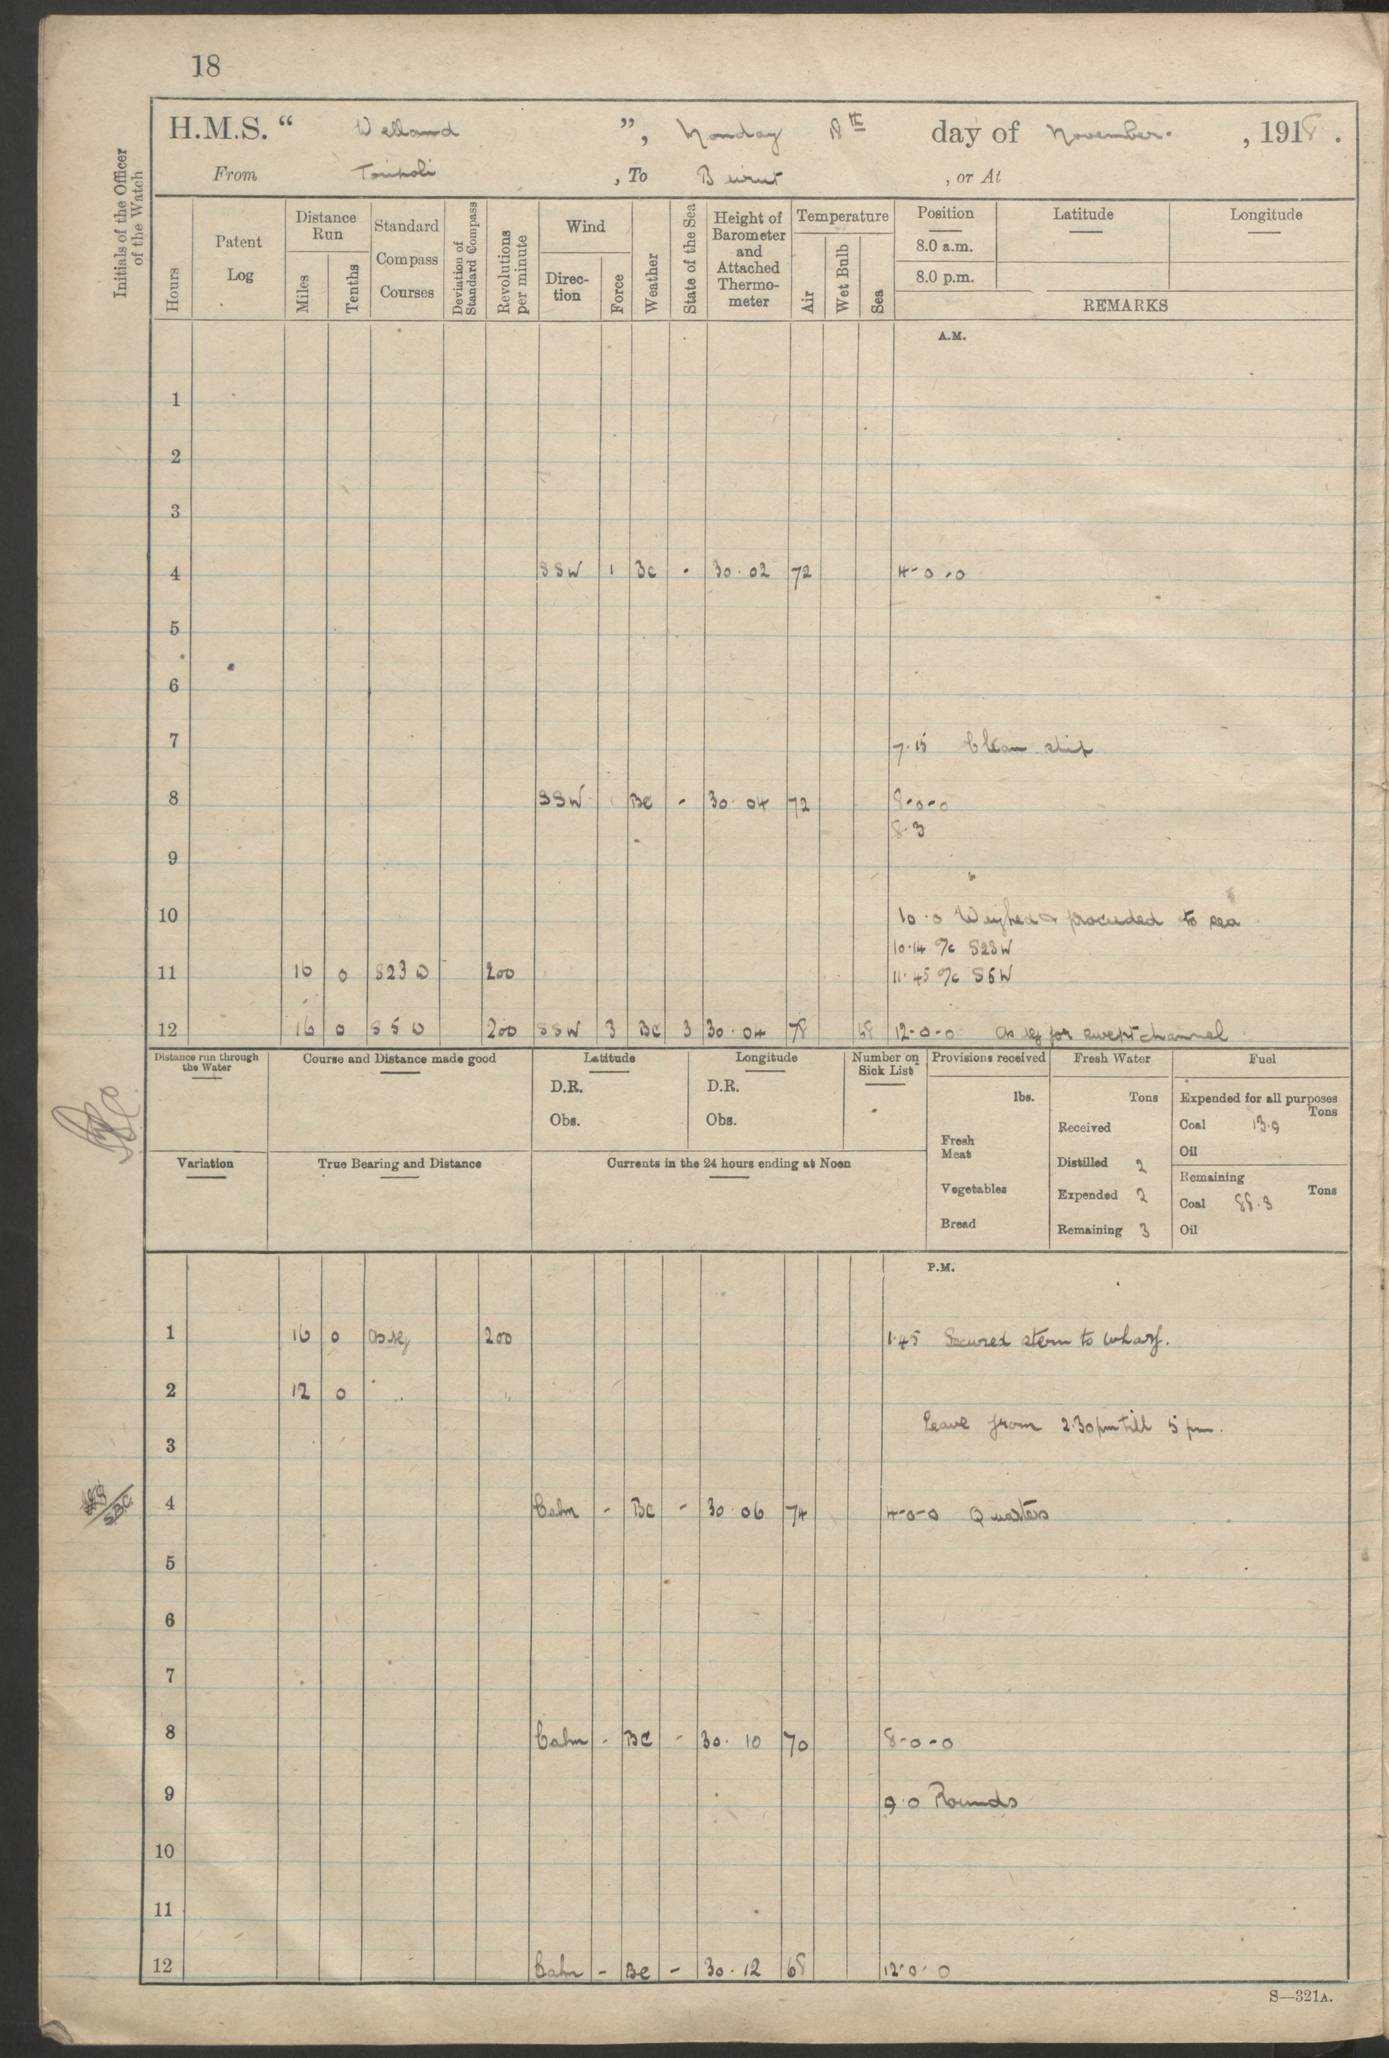 18
H.M.S. “ Welland ”, Monday 18th day of November. , 1918 .
From Tripoli , To Beirut , or At
Initials of the Officer of the Watch
Hours
Patent Log
Distance Run
Miles
Tenths
Standard Compass Courses
Deviation of Standard Compass
Revolutions per minute
Wind
Direc-tion
Force
Weather
State of the Sea
Height of Barometer and Attached Thermo-meter
Temperature
Air
Wet Bulb
Sea
Position Latitude Longitude
8.0 a.m.
8.0 p.m.
REMARKS
A.M.
1
2
3
4 SSW 1 BC - 30.02 72 4-0-0
5
6
7 7.15 Clean ship
8 SSW BC - 30.04 72 8-0-0
8.3
9
10 10.0 Weighed & proceeded to sea
10.14 %c S23W
11 16 0 S23W 200 11.45 %c S5W
12 16 0 S5W 200 SSW 3 BC 3 30.04 78 68 12-0-0 as req for swept channel
Distance run through the Water Course and Distance made good Latitude Longitude Number on Sick List Provisions received Fresh Water Fuel
D.R. D.R. lbs. Tons Expended for all purposes Tons
Obs. Obs. Fresh Meat Received Coal 13.9
Distilled 2 Oil
Variation True Bearing and Distance Currents in the 24 hours ending at Noon Vegetables Expended 2 Remaining Tons
Coal 88.3
Bread Remaining 3 Oil
P.M.
1 16 0 as req 200 1.45 Secured stern to wharf.
2 12 0
Leave from 2.30pm till 5 pm.
3
4 Calm - BC - 30.06 74 4-0-0 Quarters
5
6
7
8 Calm - BC - 30.10 70 8-0-0
9 9.0 Rounds
10
11
12 Calm - BC - 30.12 68 12-0-0
S—321A.